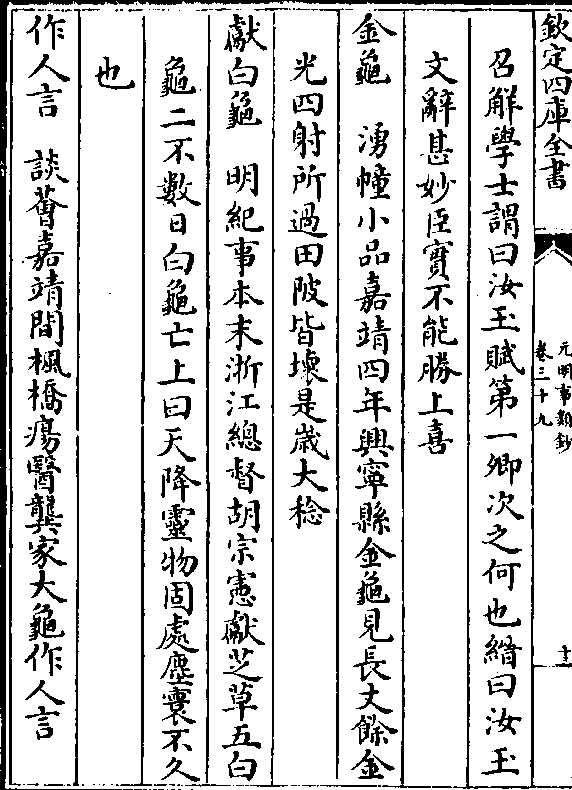 欽定四庫全書
元明事類鈔
卷三十九
十三
召解學士謂曰汝玉賦第一卿次之何也縉曰汝玉
文辭甚妙臣實不能勝上喜
金龜　湧幢小品嘉靖四年興寧縣金龜見長丈餘金
光四射所過田陂皆壞是歲大稔
獻白龜　明紀事本末浙江總督胡宗憲獻芝草五白
龜二不數日白龜亡上曰天降靈物固處塵寰不久
也
作人言　談薈嘉靖間楓橋瘍醫龔家大龜作人言